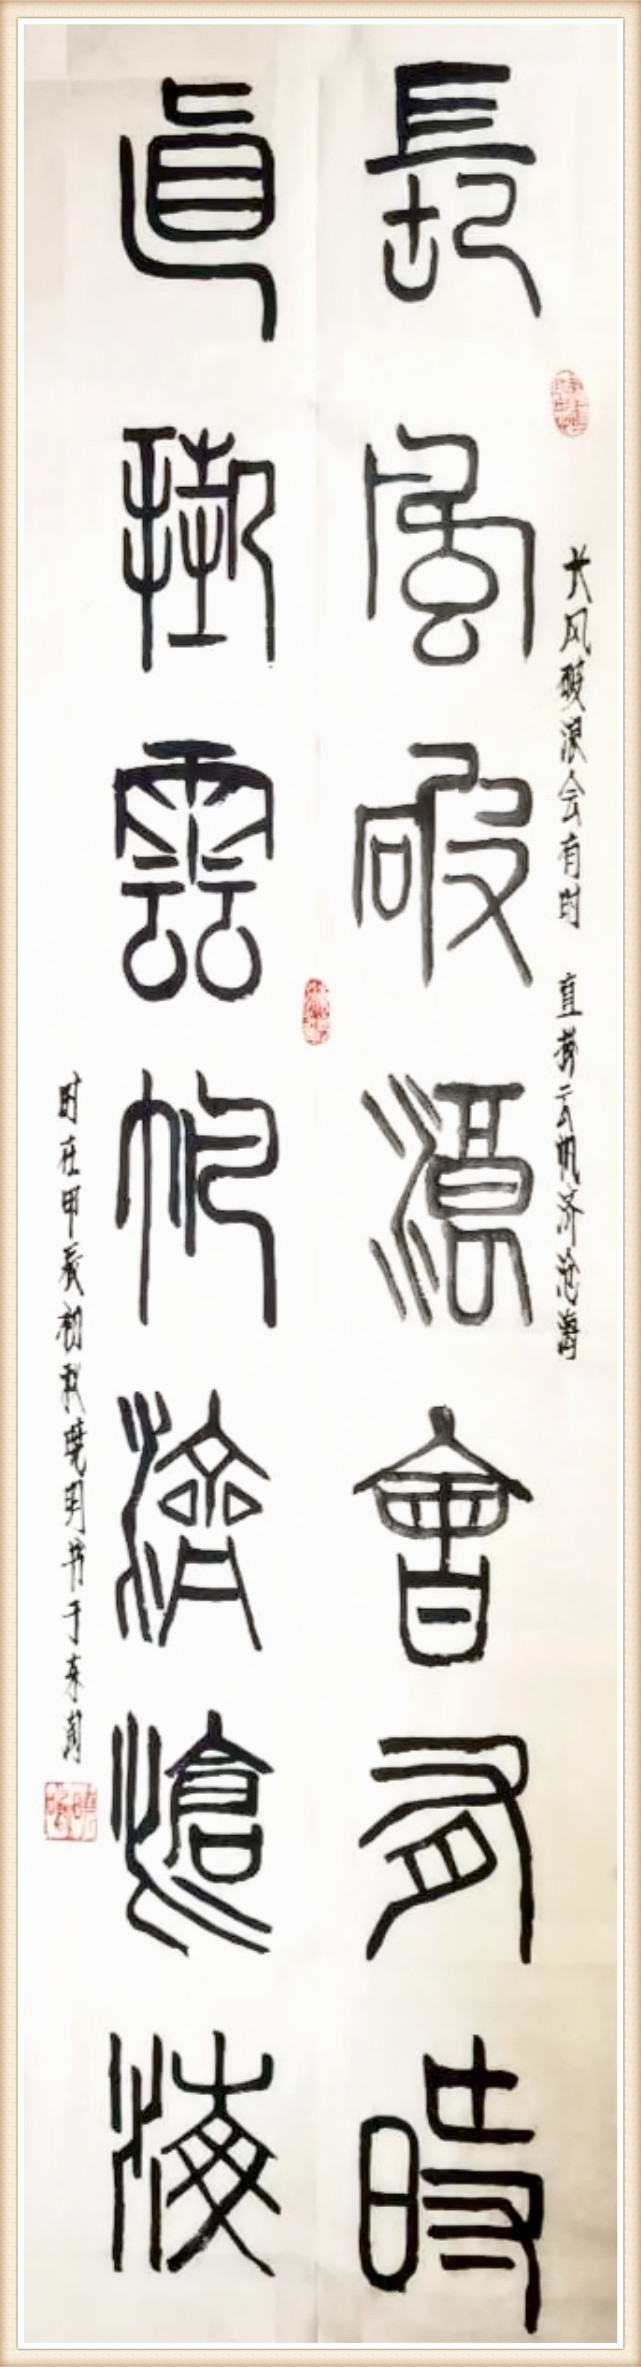 長風破浪會有時
直掛雲帆濟滄海
长风破浪会有时 直挂云帆济沧海
时在甲辰初秋晓明书于东莞